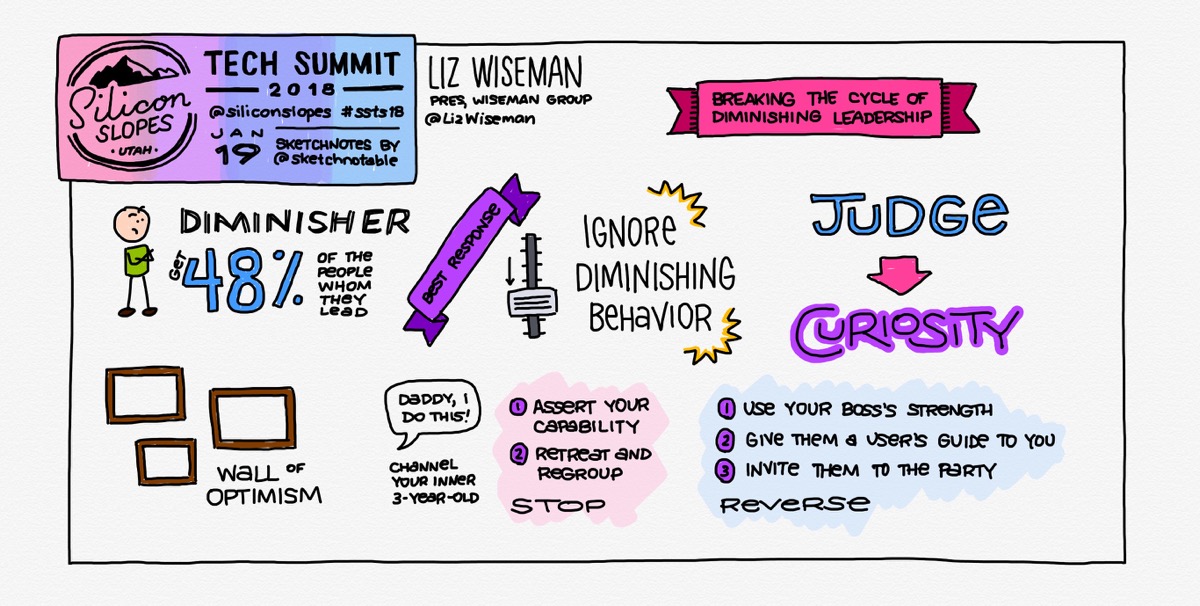 Silicon
SLOPES
• UTAH •
TECH SUMMIT
2018
@siliconslopes #ssts18
JAN
19
SKETCHNOTES BY
@sketchnotable
LIZ WISEMAN
PRES, WISEMAN GROUP
@LizWiseman
BREAKING THE CYCLE OF
DIMINISHING LEADERSHIP
DIMINISHER
GET
48%
OF THE
PEOPLE
WHOM
THEY
LEAD
BEST RESPONSE
IGNORE
DIMINISHING
BEHAVIOR
JUDGE
CURIOSITY
WALL OF
OPTIMISM
DADDY, I
DO THIS!
CHANNEL
YOUR INNER
3-YEAR-OLD
1 ASSERT YOUR
CAPABILITY
2 RETREAT AND
REGROUP
STOP
1 USE YOUR BOSS'S STRENGTH
2 GIVE THEM A USER'S GUIDE TO YOU
3 INVITE THEM TO THE PARTY
REVERSE